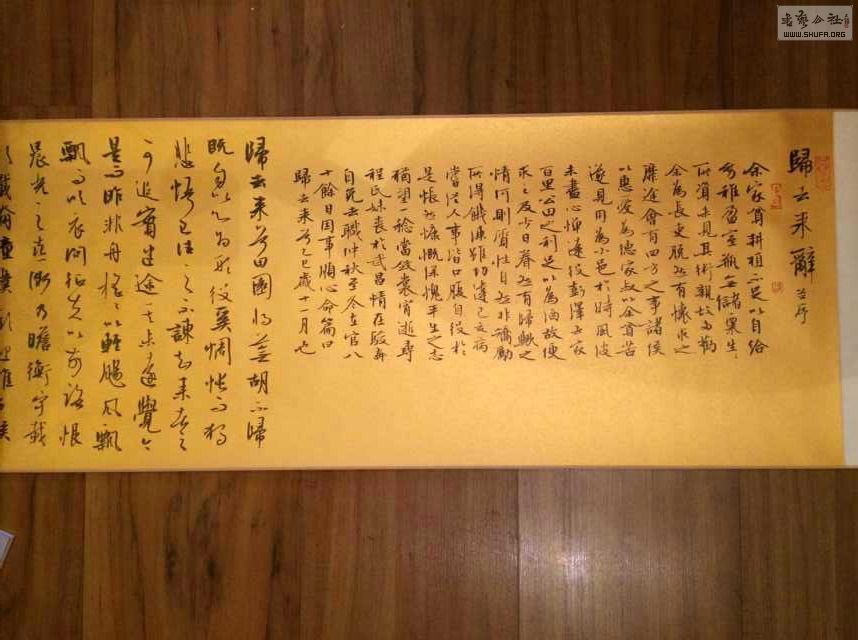 歸去来辭 并序
余家貧耕植不足以自給
幼稚盈室瓶无儲粟生〻
所資未見其術親故多勸
余為長吏脱然有懷求之
靡途會有四方之事諸侯
以惠愛為德家叔以余貧苦
遂見用為小邑於時風波
未盡心憚遠役彭澤去家
百里公田之利足以為酒故便
求之及少日眷然有歸歟之
情何則質性自然非矯勵
所得饑凍雖切違己交病
嘗從人事皆口腹自役於
是悵然慷慨深愧平生之志
猶望一稔當斂裳宵逝尋
程氏妹喪於武昌情在駿奔
自免去職仲秋至冬在官八
十餘日因事順心命篇曰
歸去来兮乙巳歲十一月也
歸去来兮田園将蕪胡不歸
既自以心為形役奚惆悵而獨
悲悟已往之不諫知来者之
可追實迷途其未遠覺今
是而昨非舟摇〻以輕颺風飄
飄而吹衣問征夫以前路恨
晨光之熹微乃瞻衡宇載
欣載奔僮僕歡迎稚子候
書藝公社
WWW.SHUFA.ORG